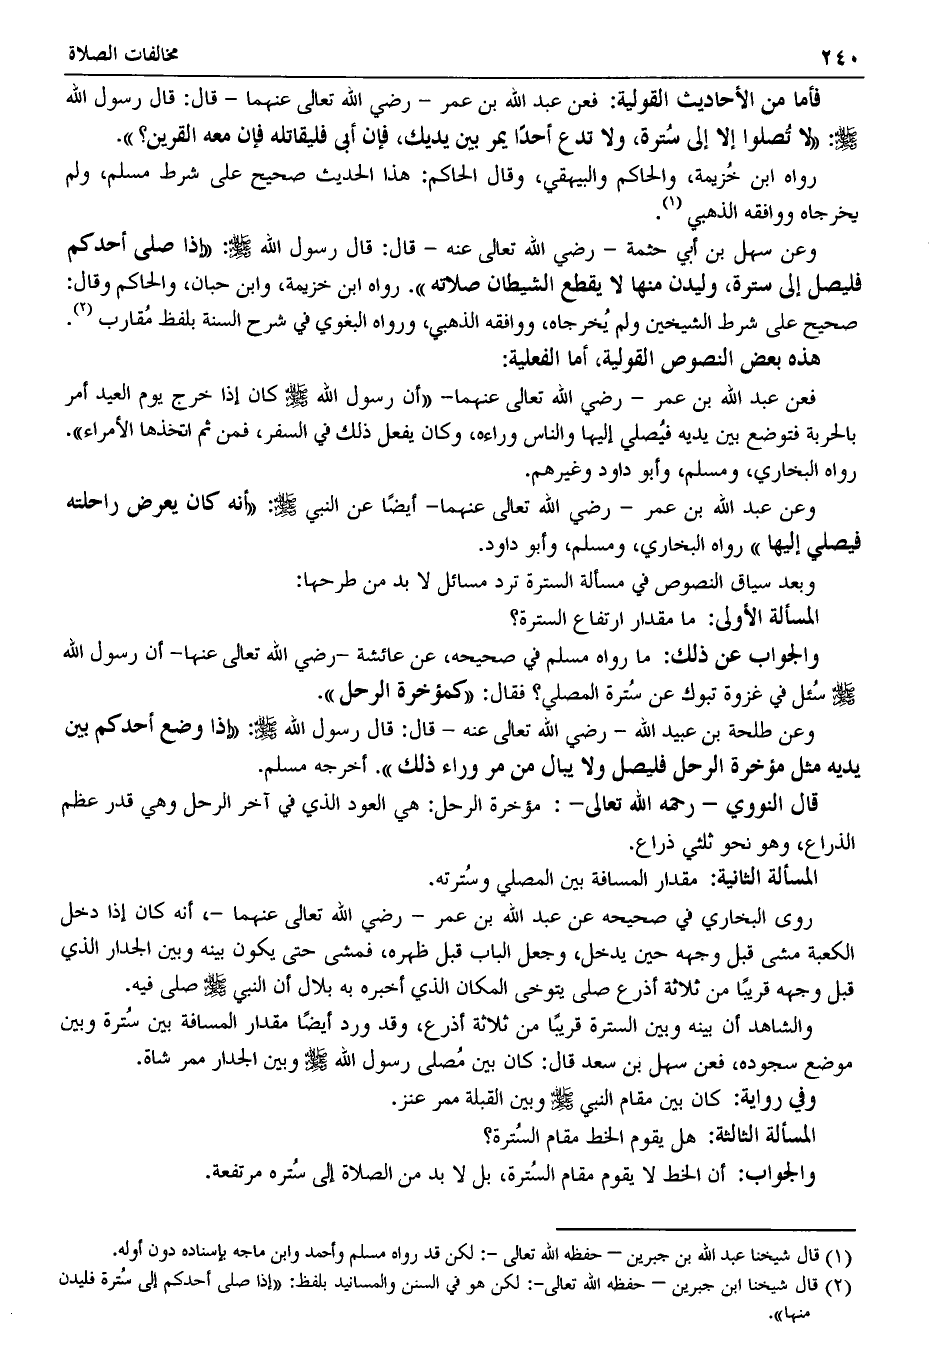 ٢٤٠
مخالفات الصلاة
فأما من الأحاديث القولية: فعن عبد الله بن عمر – رضي الله تعالى عنهما – قال: قال رسول الله
ﷺ: «لا تُصلوا إلا إلى سُترة، ولا تدع أحدًا يمر بين يديك، فإن أبى فليقاتله فإن معه القرين؟».
رواه ابن خُزيمة، والحاكم والبيهقي، وقال الحاكم: هذا الحديث صحيح على شرط مسلم، ولم
يخرجاه ووافقه الذهبي (١).
وعن سهل بن أبي حثمة – رضي الله تعالى عنه – قال: قال رسول الله ﷺ: «إذا صلى أحدكم
فليصل إلى سترة، وليدن منها لا يقطع الشيطان صلاته». رواه ابن خزيمة، وابن حبان، والحاكم وقال:
صحيح على شرط الشيخين ولم يُخرجاه، ووافقه الذهبي، ورواه البغوي في شرح السنة بلفظ مُقارب (٢).
هذه بعض النصوص القولية، أما الفعلية:
فعن عبد الله بن عمر – رضي الله تعالى عنهما– «أن رسول الله ﷺ كان إذا خرج يوم العيد أمر
بالحربة فتوضع بين يديه فيُصلي إليها والناس وراءه، وكان يفعل ذلك في السفر، فمن ثم اتخذها الأمراء».
رواه البخاري، ومسلم، وأبو داود وغيرهم.
وعن عبد الله بن عمر – رضي الله تعالى عنهما– أيضًا عن النبي ﷺ: «أنه كان يعرض راحلته
فيصلي إليها» رواه البخاري، ومسلم، وأبو داود.
وبعد سياق النصوص في مسألة السترة ترد مسائل لا بد من طرحها:
المسألة الأولى: ما مقدار ارتفاع السترة؟
والجواب عن ذلك: ما رواه مسلم في صحيحه، عن عائشة –رضي الله تعالى عنها– أن رسول الله
ﷺ سُئل في غزوة تبوك عن سُترة المصلي؟ فقال: «كمؤخرة الرحل».
وعن طلحة بن عبيد الله – رضي الله تعالى عنه – قال: قال رسول الله ﷺ: «إذا وضع أحدكم بين
يديه مثل مؤخرة الرحل فليصل ولا يبال من مر وراء ذلك». أخرجه مسلم.
قال النووي – رحمه الله تعالى– : مؤخرة الرحل: هي العود الذي في آخر الرحل وهي قدر عظم
الذراع، وهو نحو ثلثي ذراع.
المسألة الثانية: مقدار المسافة بين المصلي وسُترته.
روى البخاري في صحيحه عن عبد الله بن عمر – رضي الله تعالى عنهما –، أنه كان إذا دخل
الكعبة مشى قبل وجهه حين يدخل، وجعل الباب قبل ظهره، فمشى حتى يكون بينه وبين الجدار الذي
قبل وجهه قريبًا من ثلاثة أذرع صلى يتوخى المكان الذي أخبره به بلال أن النبي ﷺ صلى فيه.
والشاهد أن بينه وبين السترة قريبًا من ثلاثة أذرع، وقد ورد أيضًا مقدار المسافة بين سُترة وبين
موضع سجوده، فعن سهل بن سعد قال: كان بين مُصلى رسول الله ﷺ وبين الجدار ممر شاة.
وفي رواية: كان بين مقام النبي ﷺ وبين القبلة ممر عنز.
المسألة الثالثة: هل يقوم الخط مقام السُترة؟
والجواب: أن الخط لا يقوم مقام السُترة، بل لا بد من الصلاة إلى سُتره مرتفعة.
(١) قال شيخنا عبد الله بن جبرين – حفظه الله تعالى –: لكن قد رواه مسلم وأحمد وابن ماجه بإسناده دون أوله.
(٢) قال شيخنا ابن جبرين – حفظه الله تعالى–: لكن هو في السنن والمسانيد بلفظ: «إذا صلى أحدكم إلى سُترة فليدن
منها».